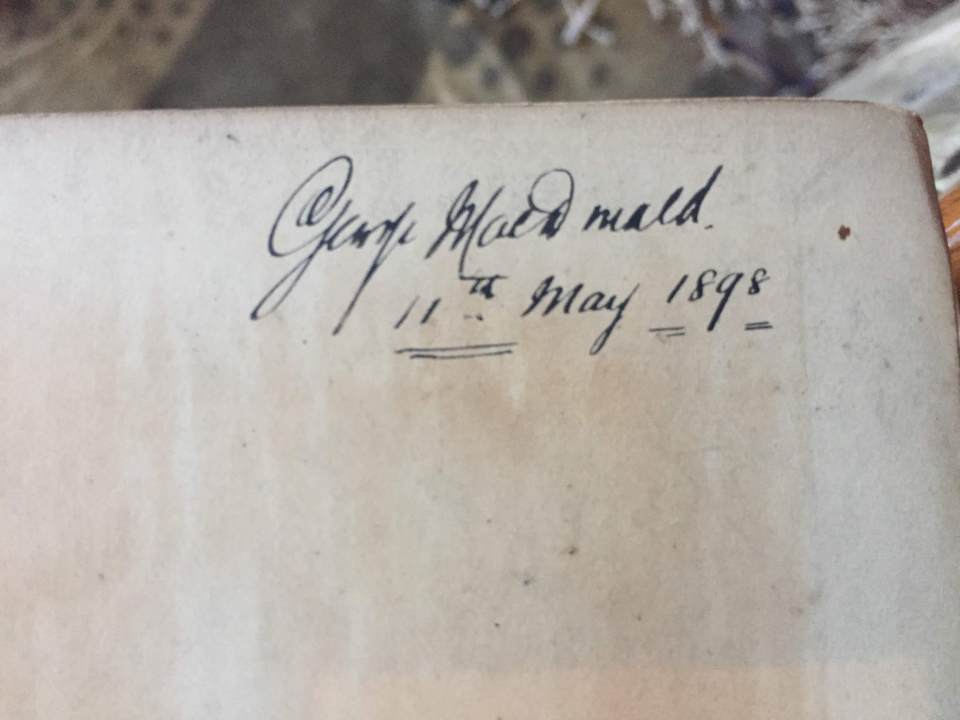 George MacDonald.
11th May 1898